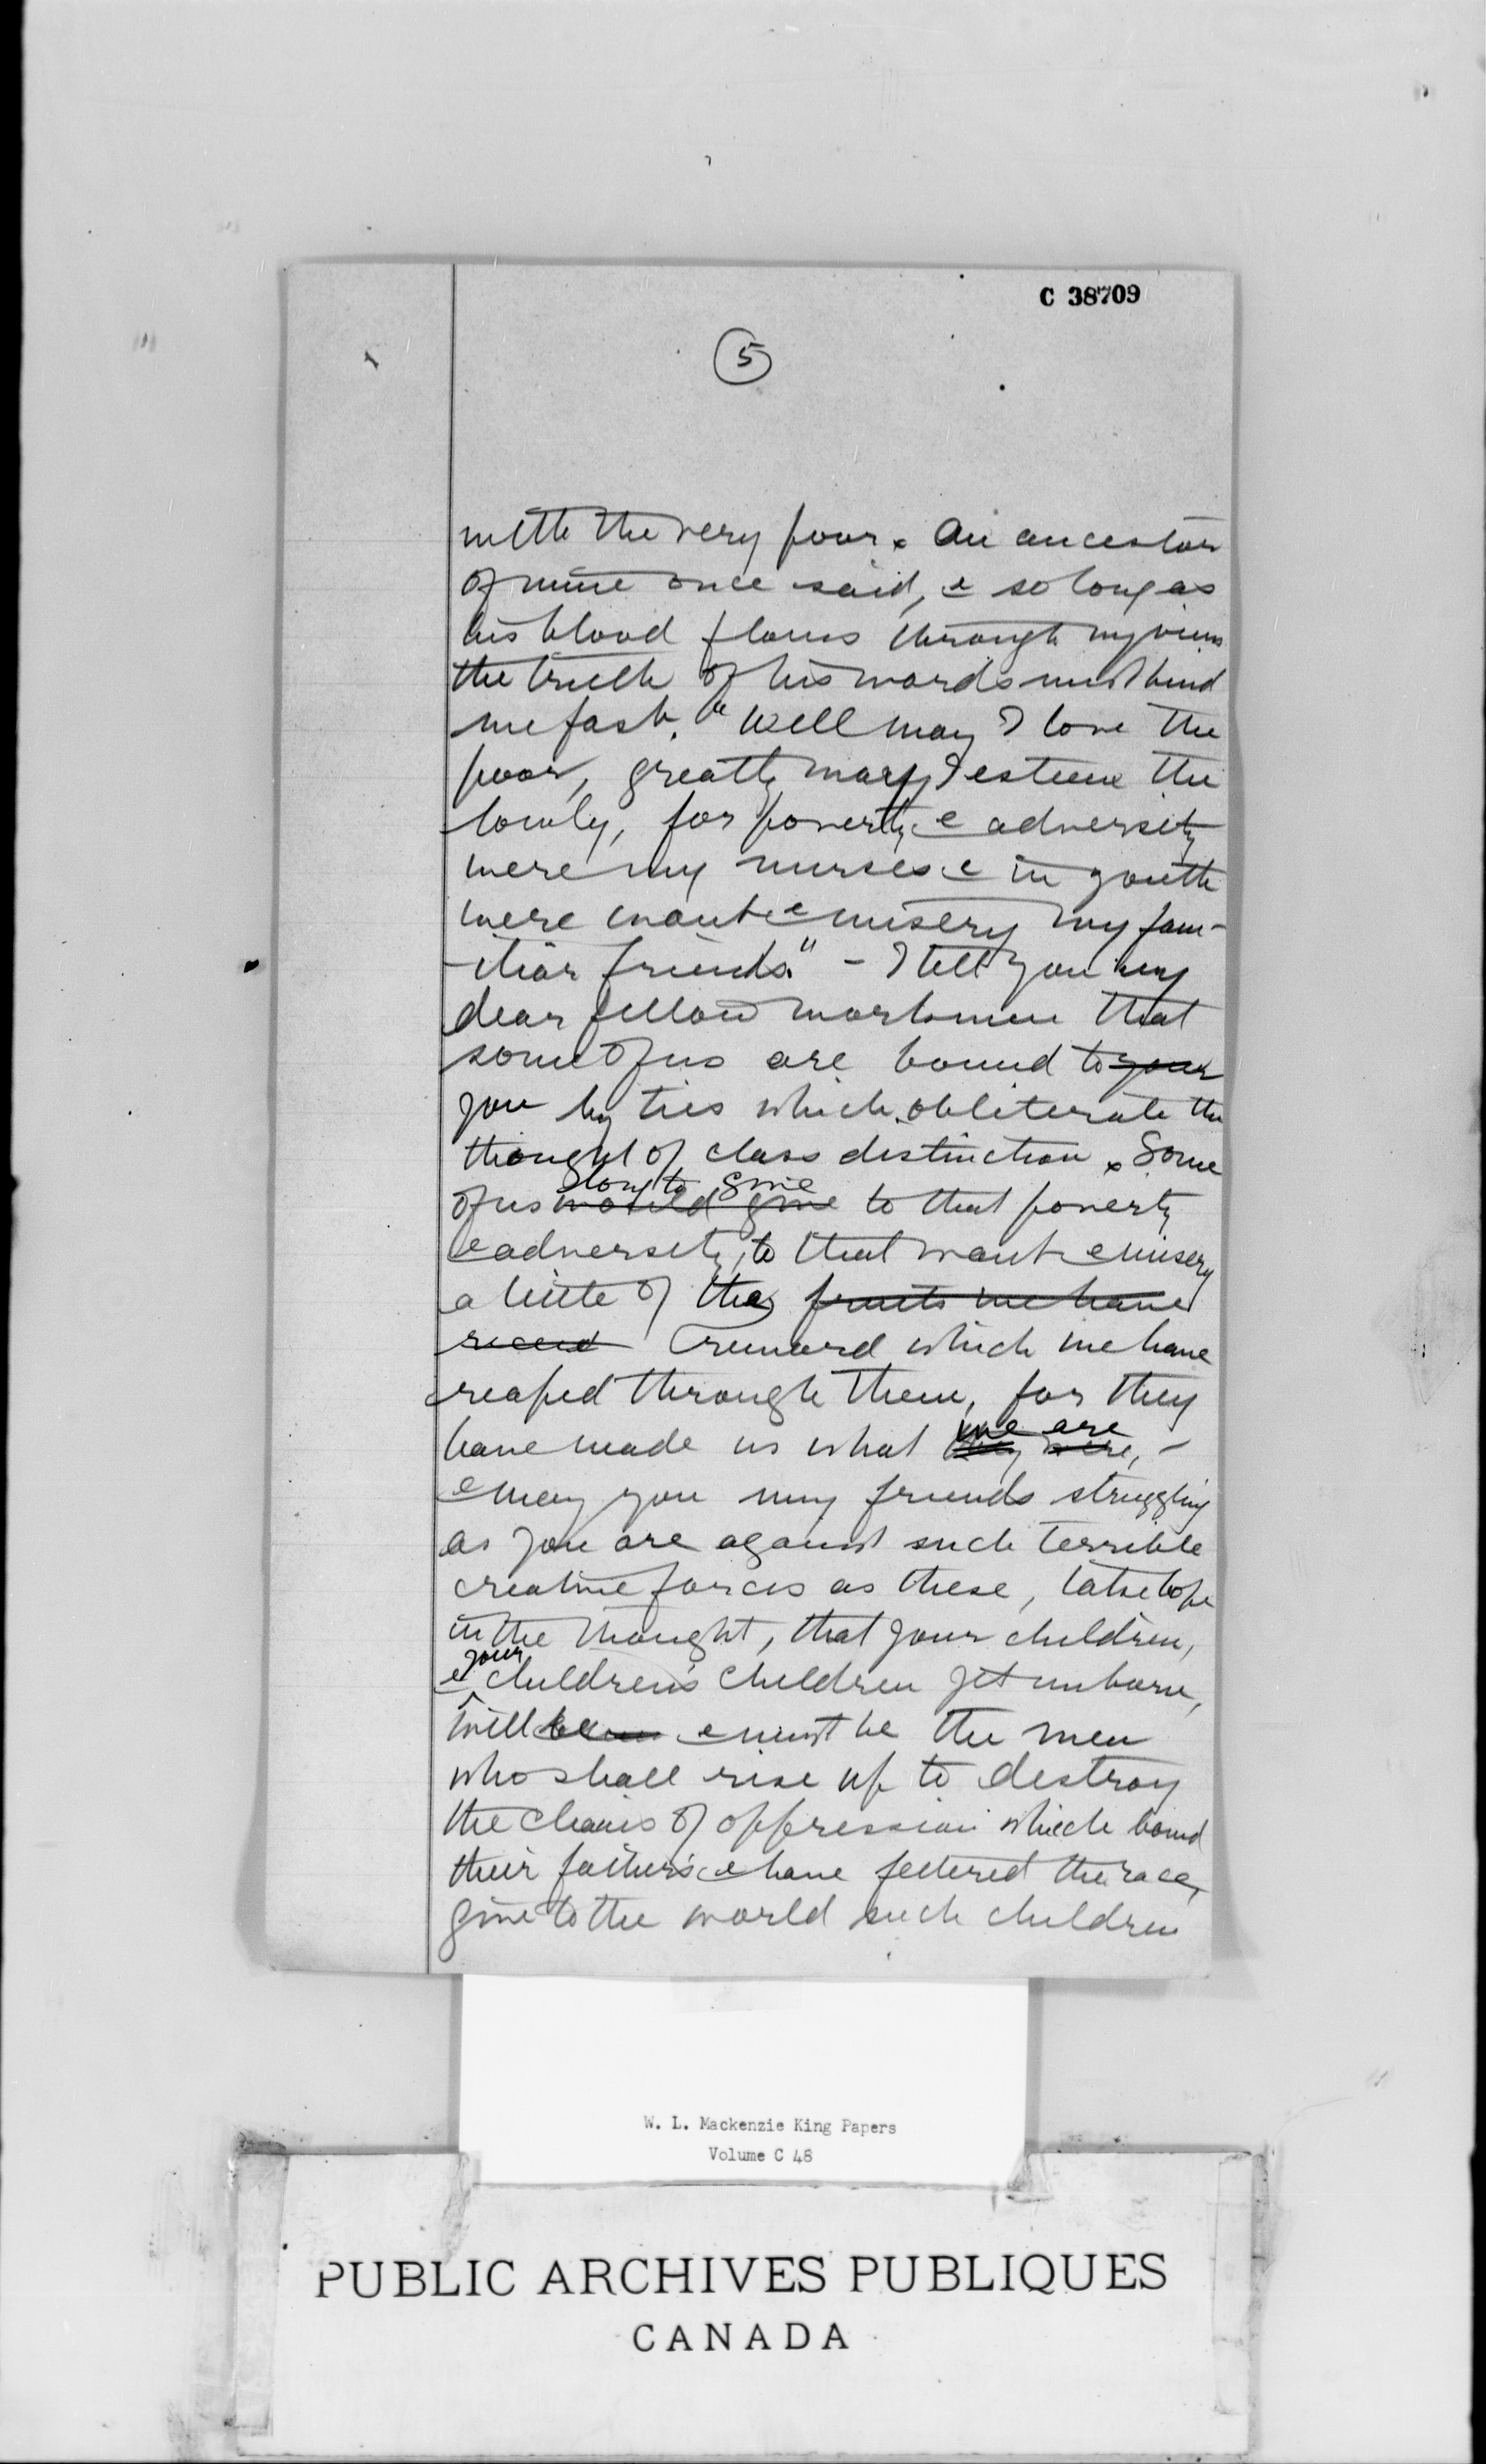 C 38709
5
with the very poor. An ancestor
of mine once said, & so long as
his blood flows through my veins
the truth of his words must bind
me fast. "Well may I love the
poor, greatly may I esteem the
lowly, for poverty & adversity
were my nurses & in youth
were want & misery my fam-
-iliar friends." - I tell you my
dear fellow workmen that
some of us are bound to your
you by ties which obliterate the
thought of class distinction. Some
long to give
of us would give to that poverty
& adversity, to that want & misery
a little of the fruits we have
reward which we have
reaped through them, for they
we are
have made us what they were, -
& may you my friends struggling
as you are against such terrible
creative forces as these, take hope
in the thought, that your children,
your
& children's children yet unborn,
will & must be the men
who shall rise up to destroy
the chains of oppression which bound
their fathers & have fettered the race,
give to the world such children
W. L. Mackenzie King Papers
Volume C 48
PUBLIC ARCHIVES PUBLIQUES
CANADA